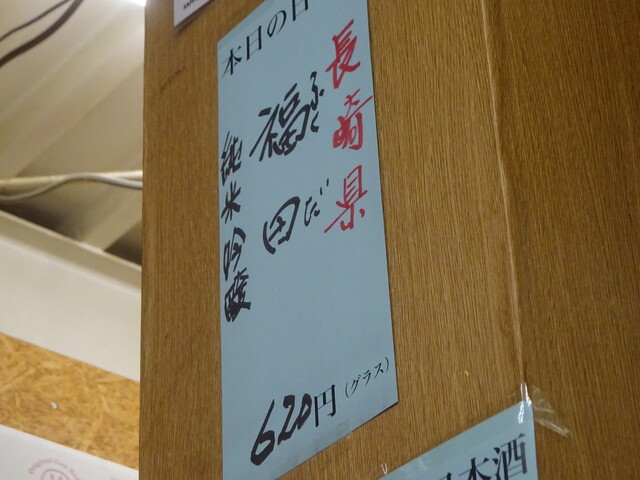 本日の日
長崎県
ふくだ
福田
純米吟醸
620円(グラス)
日本酒